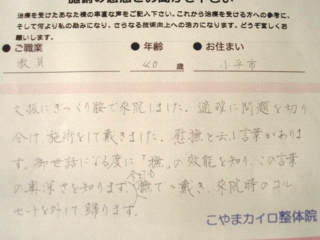 治療を受けたあなた様の率直なご声をご記入下さい。これから治療を受ける方への参考に、
そして何より私の励みになり、さらなる技術向上への活力になります。どうぞ宜しくお
願いします。
●ご職業 ●年齢 ●お住まい
教員 40歳 小平市
にぎっくり腰で来院しました。適確に問題を切り
分け、施術をして戴きました。慰撫と云う言葉がありま
す。御世話になる度に「撫」の効能を知り、この言葉
の奥深さを知ります。今日も撫でて戴き、来院時のコル
セットを外して帰ります。
こやまカイロ整体院